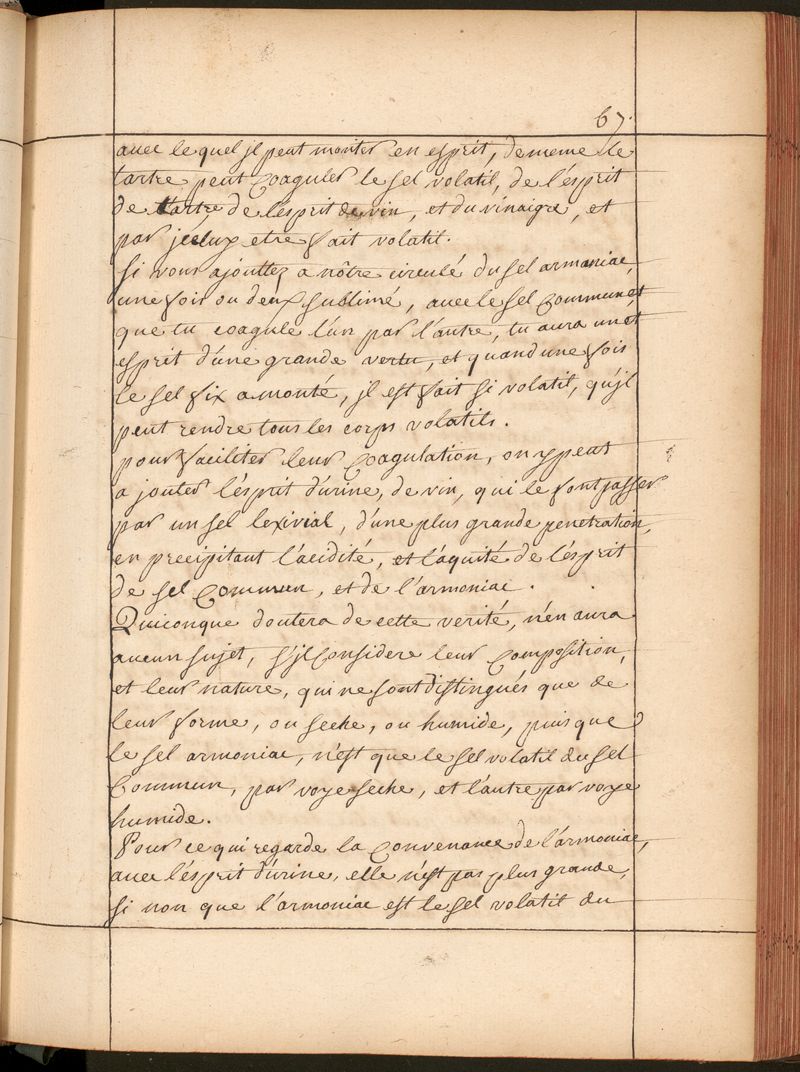 67.
avec lequel jl peut monter en esprit, de meme le
tartre peut coaguler le sel volatil, de l'ésprit
de tartre de lésprit de vin, et du vinaigre, et
par jceluy etre fait volatil.
Si vous ajouttez a nôtre circulé du sel armoniac,
une fois ou deux sublimé, avec le sel commun, et
que tu coagule l'un par l'autre, tu aura un
esprit d'une grande vertu, et quand une fois
le sel fix a monté, jl est fait si volatil, qu'jl
peut rendre tous les corps volatils.
pour faciliter leur coagulation, on y peut
ajouter l'ésprit d'urine, de vin, qui le font passer
par un sel lexivial, d'une plus grande penetration,
en precipitant l'acidité, et l'aquité de l'ésprit
de sel commun, et de l'armoniac.
Quiconque doutera de cette verité, n'en aura
aucun sujet, s'jl considere leur composition,
et leur nature, qui ne sont distingués que de
leur forme, ou seche, ou humide, puisque
le sel armoniac, n'est que le sel volatil du sel
commun, par voye seche, et l'autre par voye
humide.
Pour ce qui regarde la convenance de l'armoniac,
avec l'ésprit d'urine, elle n'est pas plus grande,
si non que l'armoniac est le sel volatil du